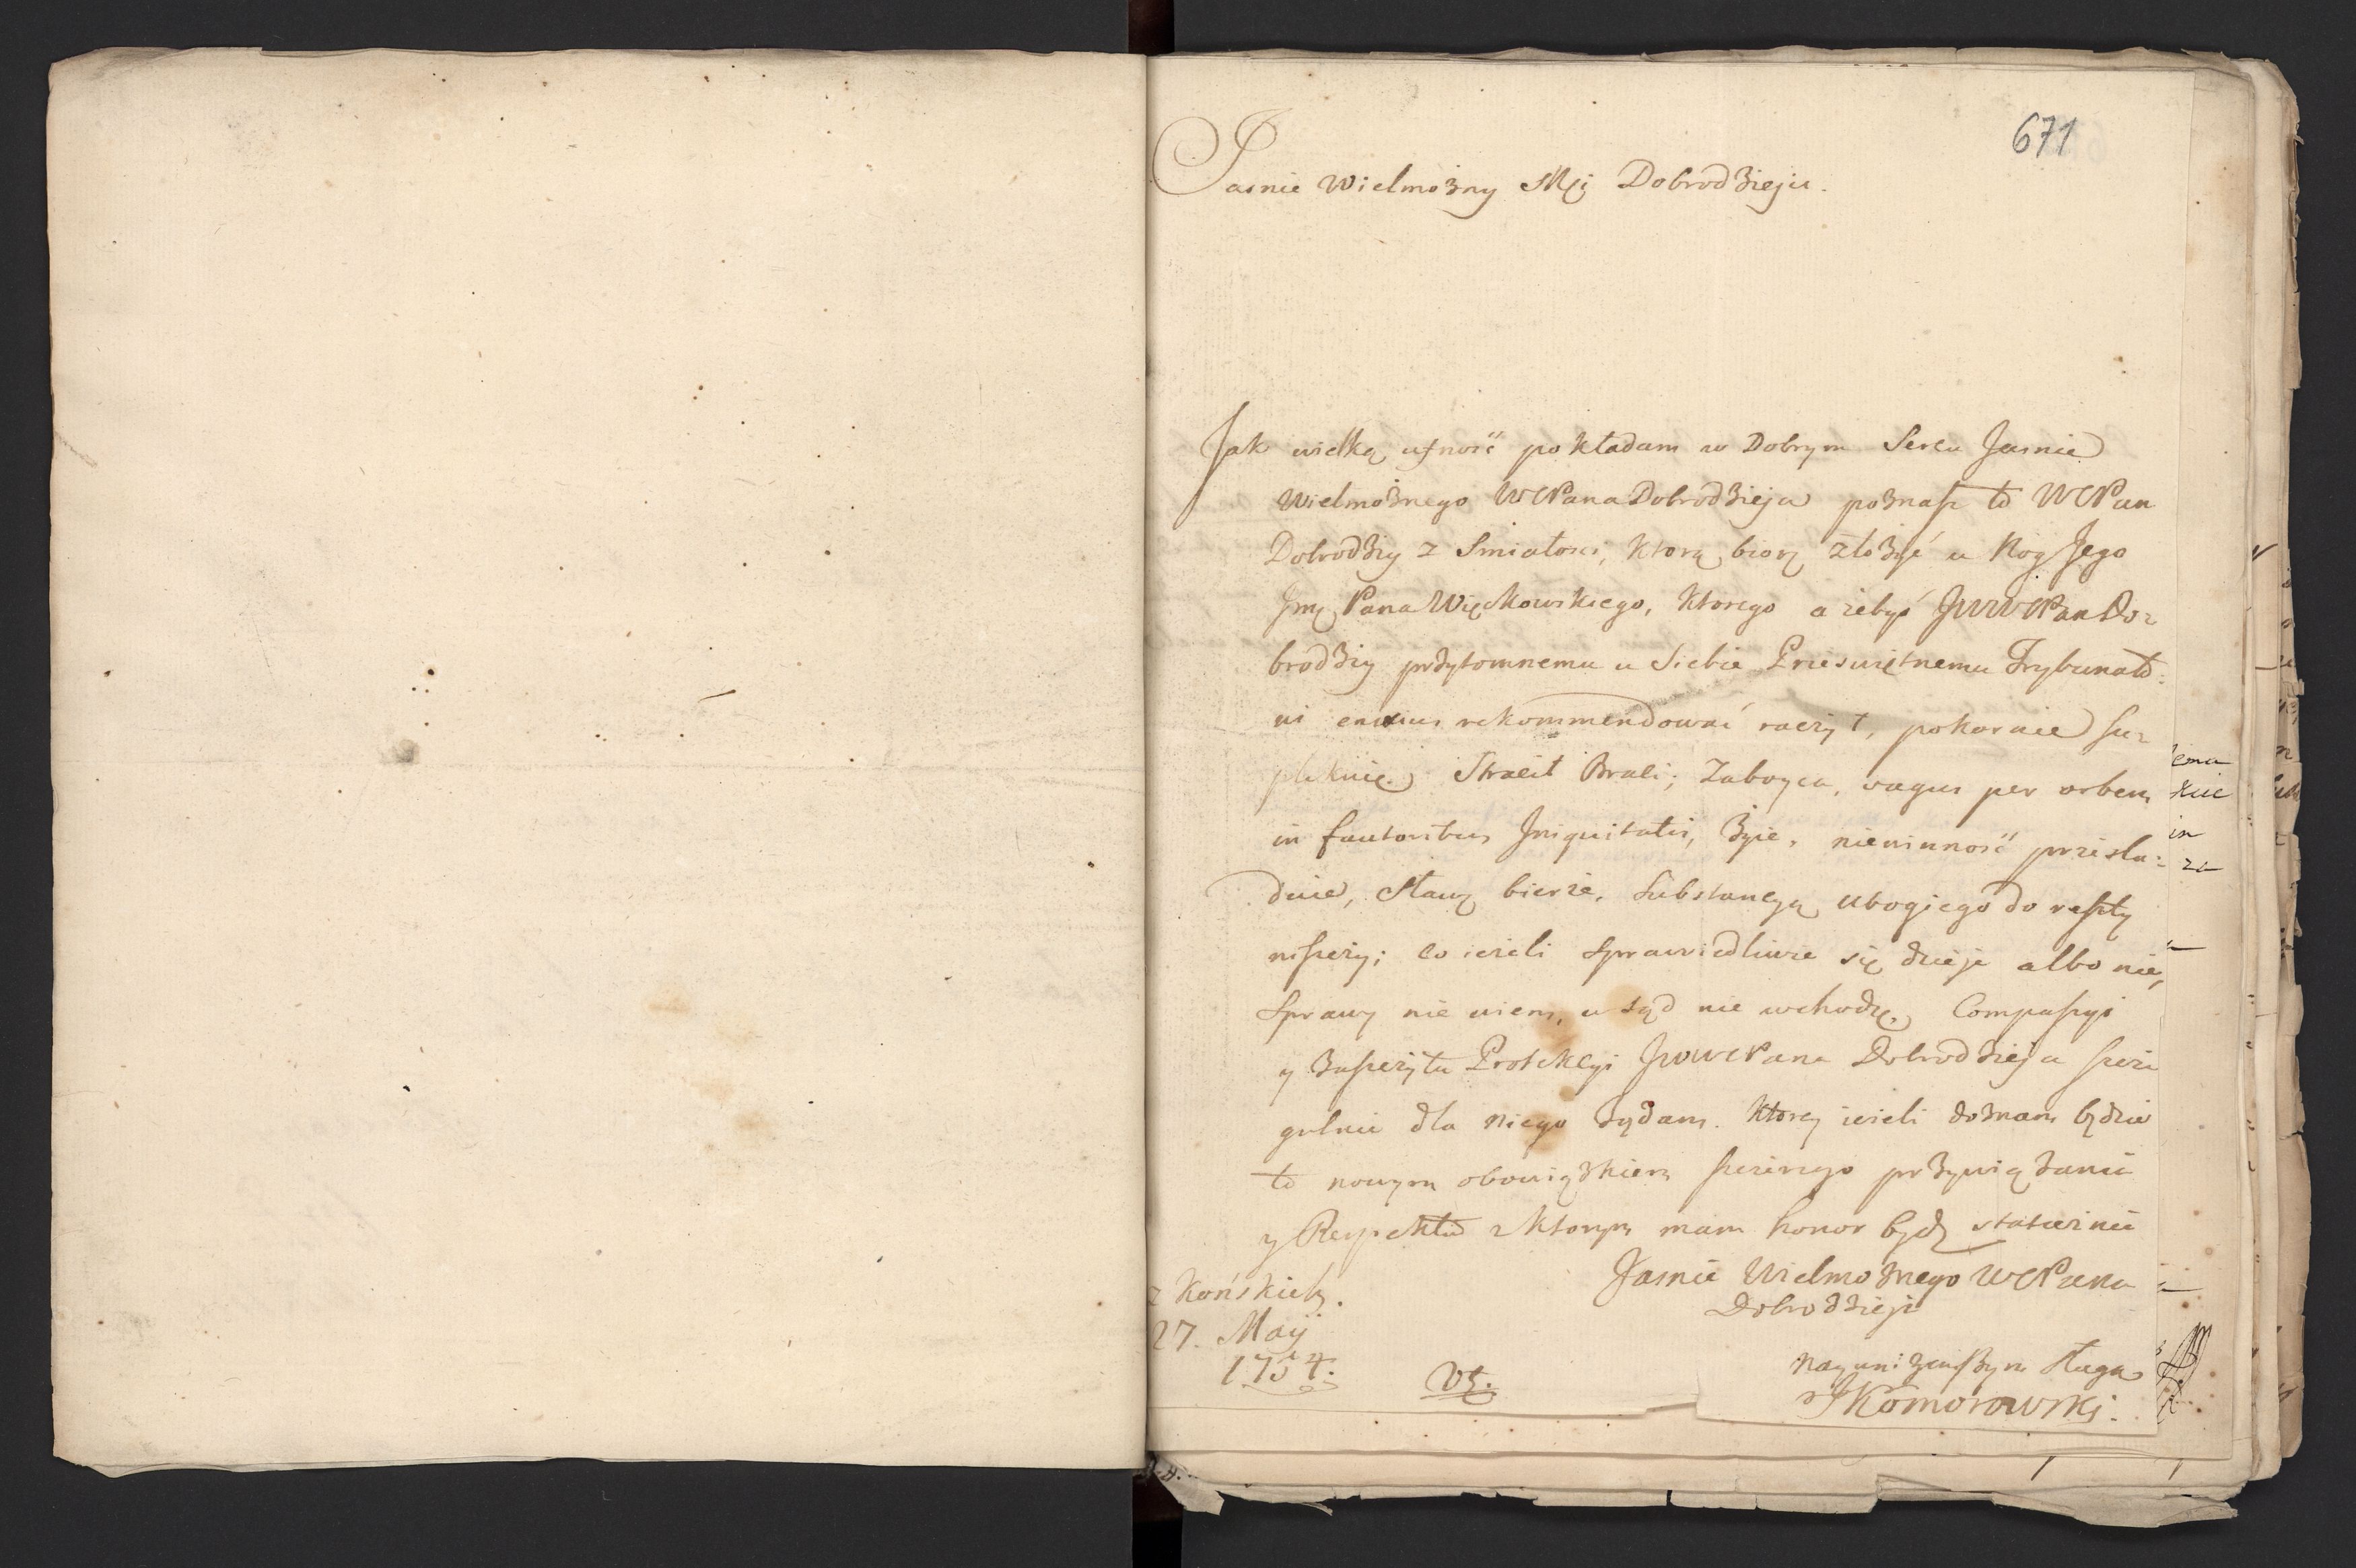 671
Jasnie Wielmożny Mći Dobrodzieju.
Jak wielką ufność pokładam w Dobrym Sercu Jasnie
Wielmożnego WMPana Dobrodzieja poznasz to WMPan
Dobrodziy z Smiałosci, ktorą biorę złożyć u Nog Jego
Jmę Pana Więckowskiego, ktorego ażebyś JWWMPan Do-
brodziy przytomnemu u Siebie Przeświętnemu Trybunało-
wi rekommendować raczył, pokornie sup-
plikuię. Zaboyca, vagus per orbem
in fautoribus Iniquitatis, żyie, niewinność prześla-
duie, Sławę bierze, Substancyą ubogiego do reszty
niszczy; co ieżeli Sprawiedliwie się dzieje albo nie,
Sprawy nie wiem, w sąd nie wchodzę. Compassyi
y Zaszczytu Protekcyi JWWMPana Dobrodzieja szcze
gulnie dla niego żądam. Ktorey ieżeli doznam będzie
to nowym obowiązkiem szczerego przywiązania
y Respektu z ktorym mam honor bydź statecznie
Jasnie Wielmożnego WMPana
Dobrodzieja
z Końskich.
27. Maij
1754.
nayuniżeńszym Sługą
JKomorowski.